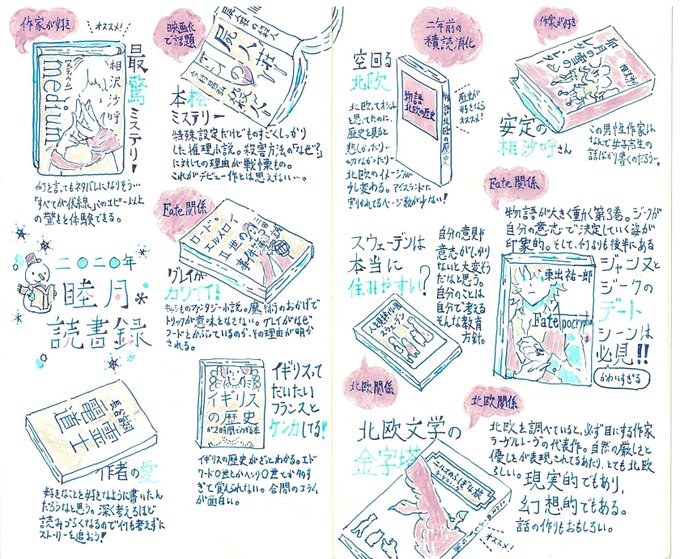 作家が好き
オススメ!
最驚ミステリ!
medium
相沢沙呼
何を言ってもネタバレになりそう…
"すべてが伏線"のコピー以上
の驚きを体験できる。
映画化
で話題
屍人荘
の殺人
今村昌弘
本格
ミステリー
特殊設定だけどものすごくしっかり
した推理小説。殺害方法の"なぜ?"
に対しての理由が戦慄もの。
これがデビュー作とは思えない…。
Fate関係
ロード・
エルメロイ
II世の
事件簿
三田誠
グレイが
カワイイ!
キャラものファンタジー小説。魔術のおかげで
トリックが意味をなさない。グレイがなぜ
フードをかぶっているのか、その理由が明か
される。
二〇二〇年
睦月
読書録
電霊道士
作者の愛
好きなことを好きなように書いたん
だろうなと思う。深く考えるほど
読みづらくなるので何も考えずに
ストーリーを追おう!
イギリス
の歴史
が2時間でわかる本
イギリスって
だいたい
フランスと
ケンカしてる!
イギリスの歴史がざっとわかる。エド
ワード〇世とかヘンリ〇世とか多す
ぎて覚えられない。合間のコラム
が面白い。
二年前の
積読消化
空回る
北欧
物語
北欧の歴史
歴史が
好きなら
オススメ!
北欧の
思ってたのに、
歴史を見ると
悲しかったり…
切なかったり…
北欧のイメージが
少し変わる。アイスランドに
割かれてるページ数が少ない!
作家が好き
オススメ!
相沢沙呼
安定の
相沢沙呼さん
この男性作家は
なんで女子高生の
話ばかり書くのだろう…。
Fate関係
物語が大きく動く第3巻。ジークが
自分の意志で決定していく姿が
印象的。そして、何よりも後半にある
ジャンヌと
ジークの
デート
シーンは
必見!!
かわいすぎる
東出祐一郎
Fate
Apocrypha
スウェーデンは
本当に
住みやすい?
自分の意見や
意志がしっかり
ないと大変そう
だなと思う。
自分のことは
自分で考える
そんな教育
方針。
スウェーデン
北欧関係
北欧関係
北欧文学の
金字塔
ニルスのふしぎな旅
オススメ!
北欧を調べていると、必ず目にする作家
ラーゲルレーヴの代表作。自然の厳しさと
優しさが表現されてるあたり、とても北欧
らしい。現実的でもあり、
幻想的でもある。
話の作りもおもしろい。